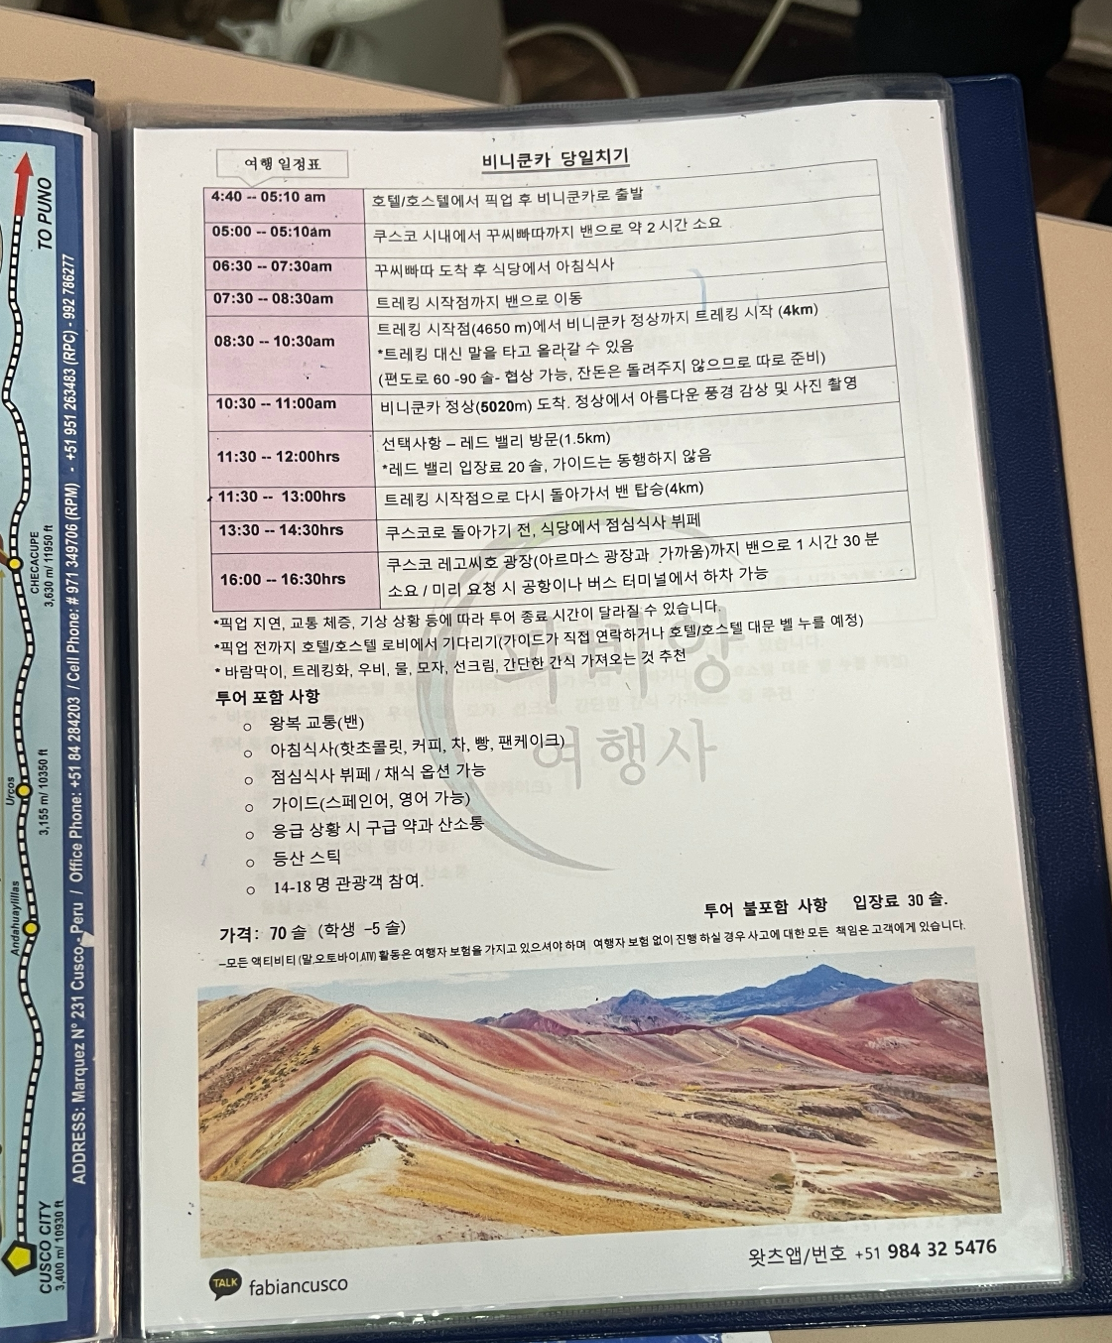 TO PUNO
CHECACUPE
3,630 m/ 11950 ft
Urcos
3,155 m/ 10350 ft
Andahuaylillas
CUSCO CITY
3,400 m/ 10930 ft
ADDRESS: Marquez N° 231 Cusco - Peru / Office Phone: +51 84 284203 / Cell Phone: # 971 349706 (RPM) - +51 951 263483 (RPC) - 992 786277
여행 일정표
비니쿤카 당일치기
4:40 -- 05:10 am 호텔/호스텔에서 픽업 후 비니쿤카로 출발
05:00 -- 05:10am 쿠스코 시내에서 꾸씨빠따까지 밴으로 약 2 시간 소요
06:30 -- 07:30am 꾸씨빠따 도착 후 식당에서 아침식사
07:30 -- 08:30am 트레킹 시작점까지 밴으로 이동
08:30 -- 10:30am 트레킹 시작점(4650 m)에서 비니쿤카 정상까지 트레킹 시작 (4km)
*트레킹 대신 말을 타고 올라갈 수 있음
(편도로 60 -90 솔- 협상 가능, 잔돈은 돌려주지 않으므로 따로 준비)
10:30 -- 11:00am 비니쿤카 정상(5020m) 도착. 정상에서 아름다운 풍경 감상 및 사진 촬영
11:30 -- 12:00hrs 선택사항 – 레드 밸리 방문(1.5km)
*레드 밸리 입장료 20 솔, 가이드는 동행하지 않음
11:30 -- 13:00hrs 트레킹 시작점으로 다시 돌아가서 밴 탑승(4km)
13:30 -- 14:30hrs 쿠스코로 돌아가기 전, 식당에서 점심식사 뷔페
16:00 -- 16:30hrs 쿠스코 레고씨호 광장(아르마스 광장과 가까움)까지 밴으로 1 시간 30 분
소요 / 미리 요청 시 공항이나 버스 터미널에서 하차 가능
*픽업 지연, 교통 체증, 기상 상황 등에 따라 투어 종료 시간이 달라질 수 있습니다.
*픽업 전까지 호텔/호스텔 로비에서 기다리기(가이드가 직접 연락하거나 호텔/호스텔 대문 벨 누를 예정)
* 바람막이, 트레킹화, 우비, 물, 모자, 선크림, 간단한 간식 가져오는 것 추천
투어 포함 사항
○ 왕복 교통(밴)
○ 아침식사(핫초콜릿, 커피, 차, 빵, 팬케이크)
○ 점심식사 뷔페 / 채식 옵션 가능
○ 가이드(스페인어, 영어 가능)
○ 응급 상황 시 구급 약과 산소통
○ 등산 스틱
○ 14-18 명 관광객 참여.
파비앙
여행사
투어 불포함 사항 입장료 30 솔.
가격: 70 솔 (학생 –5 솔)
–모든 액티비티 (말,오토바이,ATV) 활동은 여행자 보험을 가지고 있으셔야 하며 여행자 보험 없이 진행 하실 경우 사고에 대한 모든 책임은 고객에게 있습니다.
왓츠앱/번호 +51 984 32 5476
TALK fabiancusco